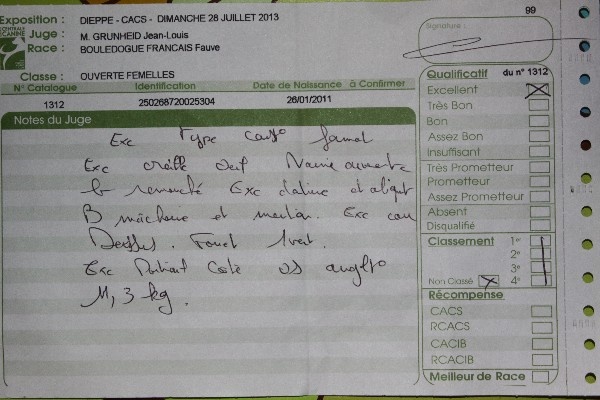 99
Exposition : DIEPPE - CACS - DIMANCHE 28 JUILLET 2013
Juge : M. GRUNHEID Jean-Louis
Race : BOULEDOGUE FRANCAIS Fauve
CENTRALE CANINE
Classe : OUVERTE FEMELLES
N° Catalogue Identification Date de Naissance à Confirmer
1312 250268720025304 26/01/2011
Notes du Juge
Exc Type format
Exc oreille oeil Narine ouverte
b Exc
B mâchoire et menton. Exc cou
Dessus. Fouet
Exc Poitrail Cote
11,3 kg.
Signature :
Qualificatif du n° 1312
Excellent
Très Bon
Bon
Assez Bon
Insuffisant
Très Prometteur
Prometteur
Assez Prometteur
Absent
Disqualifié
Classement 1er
2e
3e
Non Classé 4e
Récompense
CACS
RCACS
CACIB
RCACIB
Meilleur de Race